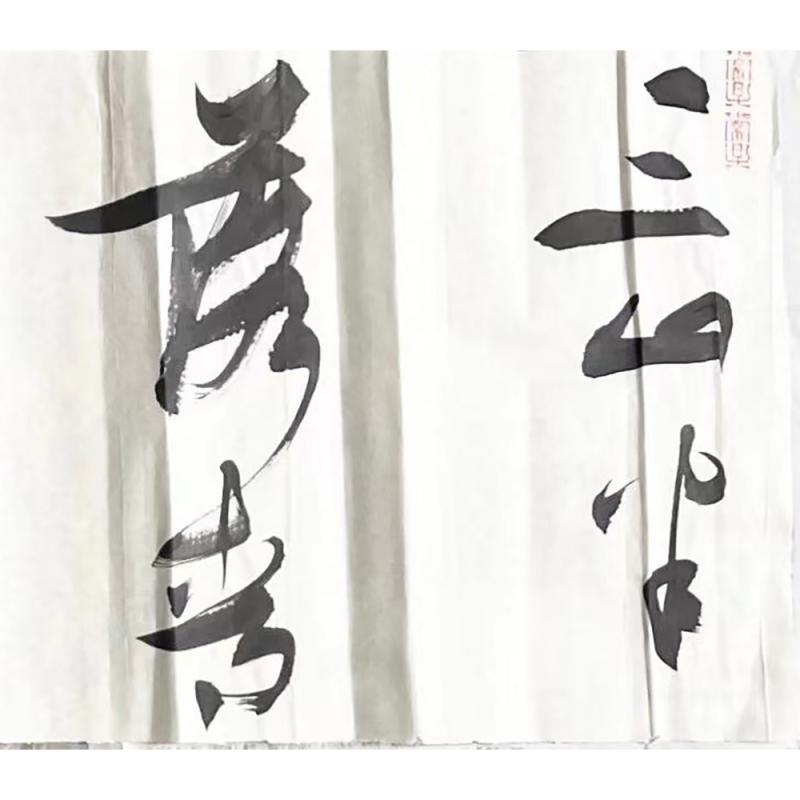 三山半
落青